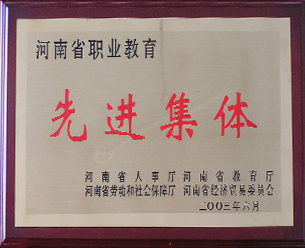 河南省职业教育
先进集体
河南省人事厅 河南省教育厅
河南省劳动和社会保障厅 河南省经济贸易委员会
二00三年六月